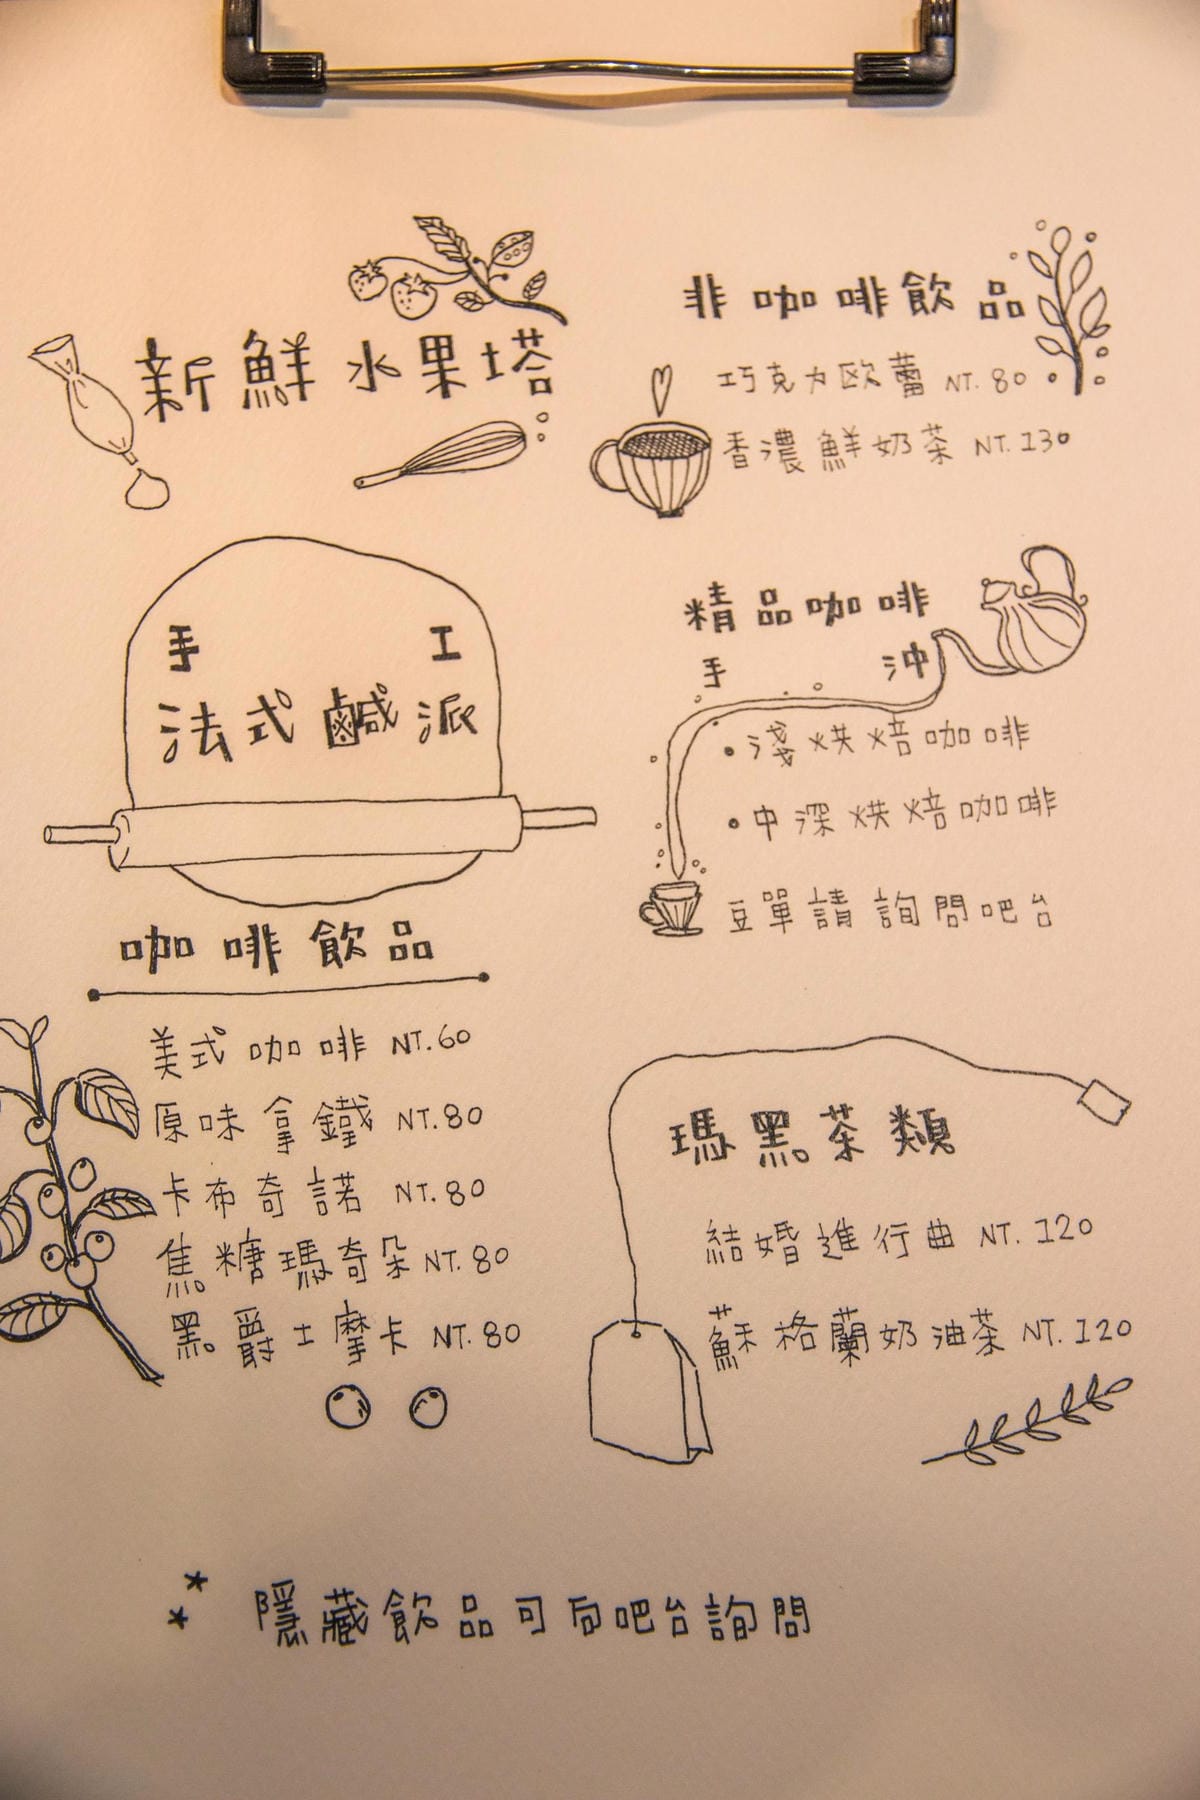 新鮮水果塔
手工
法式鹹派
咖啡飲品
美式咖啡 NT.60
原味拿鐵 NT.80
卡布奇諾 NT.80
焦糖瑪奇朵 NT.80
黑爵士摩卡 NT.80
非咖啡飲品
巧克力歐蕾 NT.80
香濃鮮奶茶 NT.130
精品咖啡
手沖
•淺烘焙咖啡
•中深烘焙咖啡
豆單請詢問吧台
瑪黑茶類
結婚進行曲 NT.120
蘇格蘭奶油茶 NT.120
** 隱藏飲品可向吧台詢問